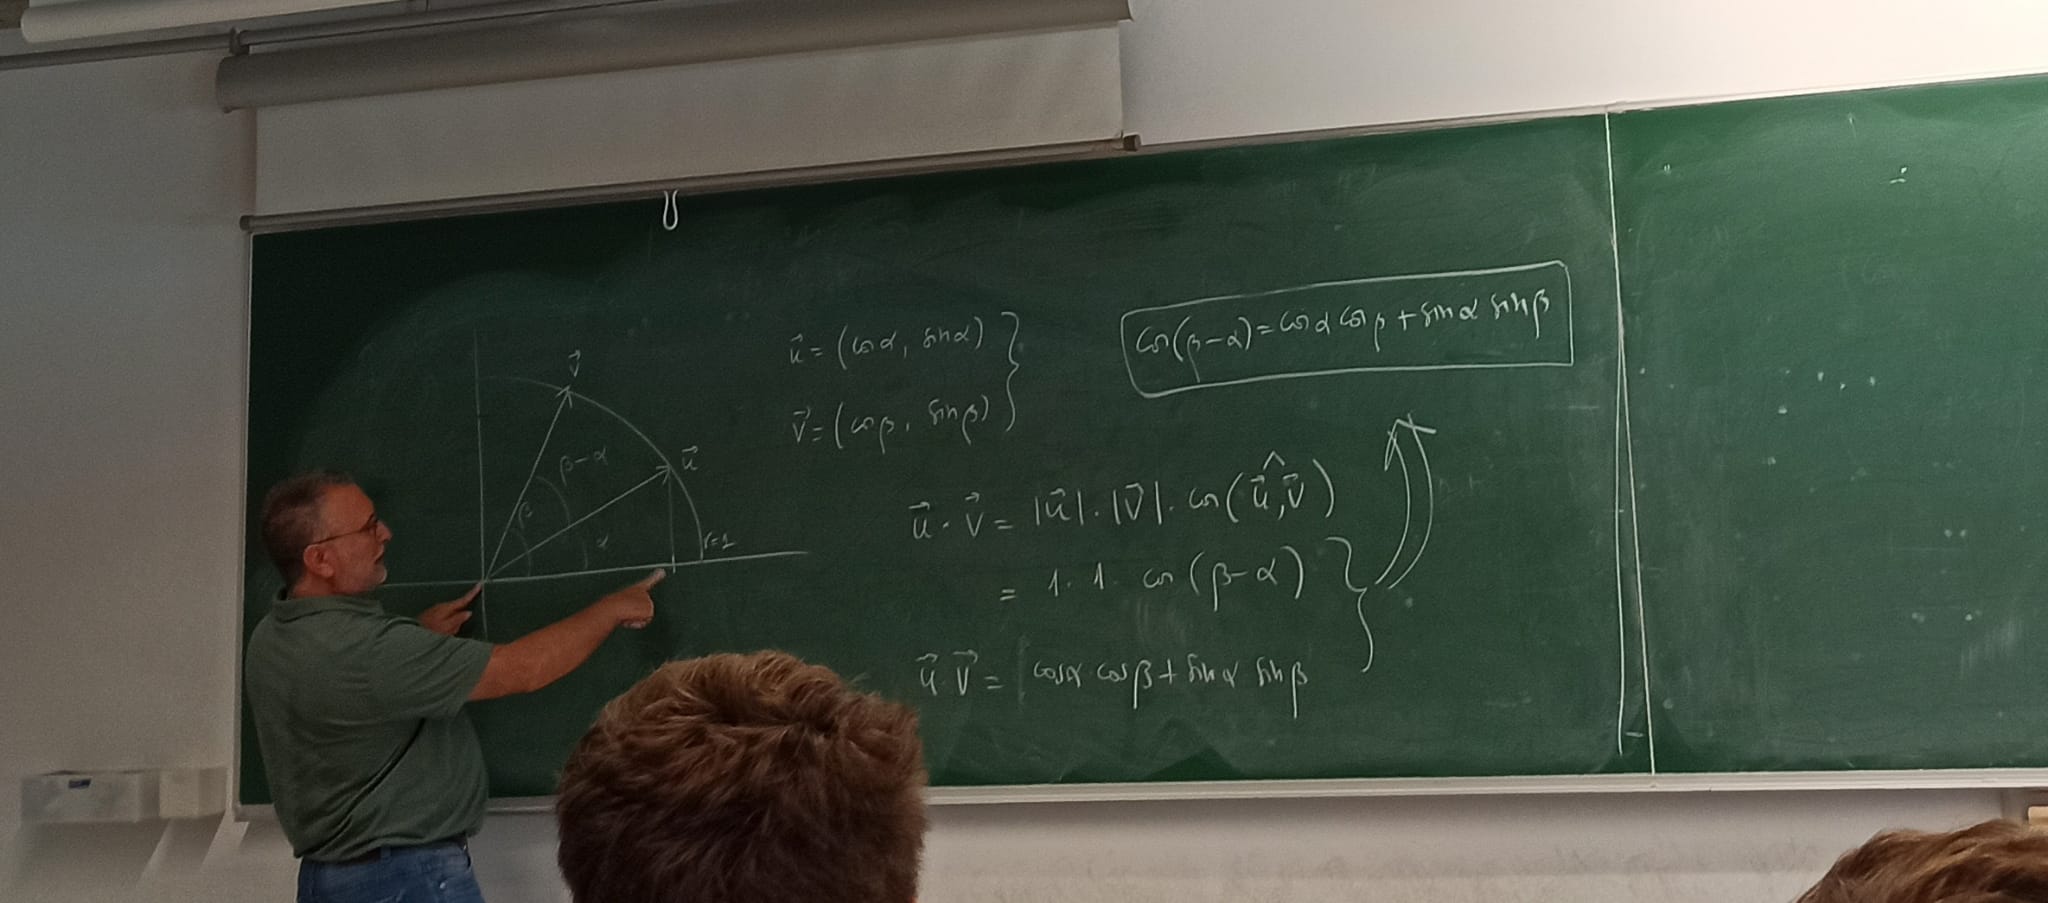 v⃗
u⃗
β-α
β
α
r=1
u⃗ = (cos α, sin α)
v⃗ = (cos β, sin β)
cos(β-α) = cos α cos β + sin α sin β
u⃗ · v⃗ = |u⃗| · |v⃗| · cos(u⃗,^v⃗)
= 1 · 1 · cos(β-α)
u⃗ · v⃗ = cos α cos β + sin α sin β